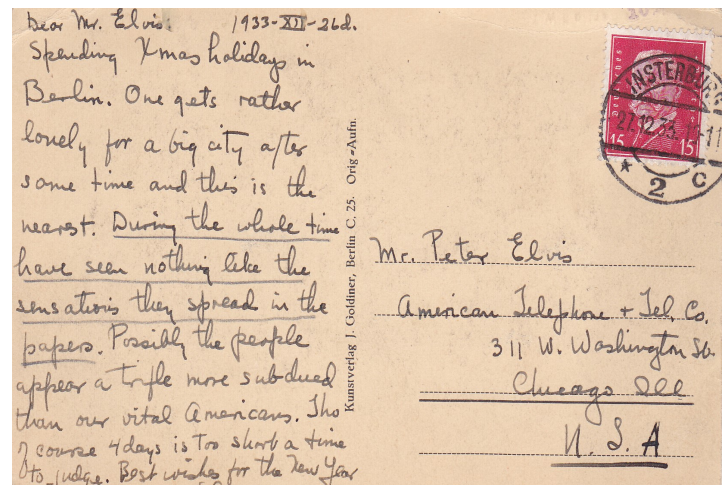 Dear Mr. Elvis: 1933-XII-26d.
Spending Xmas holidays in
Berlin. One gets rather
lonely for a big city after
some time and this is the
nearest. During the whole time
have seen nothing like the
sensations they spread in the
papers. Possibly the people
appear a trifle more subdued
than our vital Americans. Tho
of course 4 days is too short a time
to judge. Best wishes for the New Year
Kunstverlag J. Goldiner, Berlin C. 25. Orig-Aufn.
15 15
INSTERBURG
27.12.33.
* 2 c
Mr. Peter Elvis
American Telephone + Tel. Co.
311 W. Washington St.
Chicago Ill
U.S.A